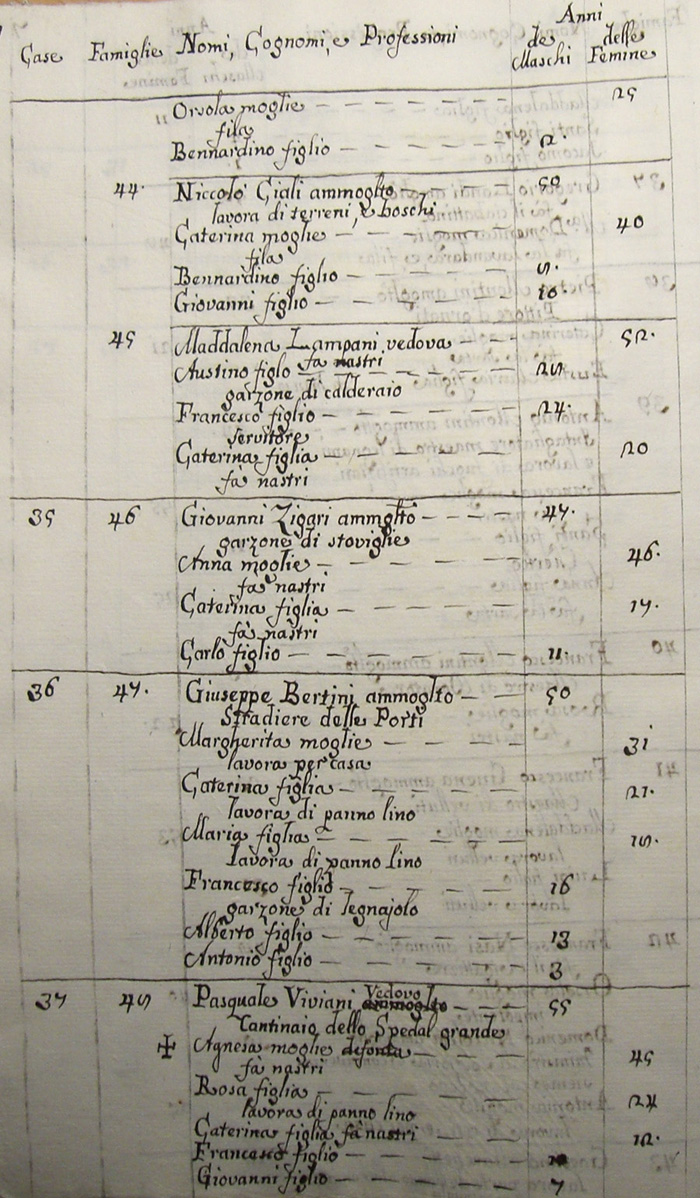 Case Famiglie Nomi, Cognomi, e Professioni Anni
de Maschi delle Femine
Orsola moglie 25
fila
Bennardino figlio 2.
44. Niccolò Ciali ammoglto 50
lavora di terreni, e boschi
Caterina moglie 40
fila
Bennardino figlio 8.
Giovanni figlio 10.
45 Maddalena Lampani vedova 52.
fa nastri
Austino figlo 28
garzone di calderaio
Francesco figlio 24.
servitore
Caterina figlia 20
fà nastri
35 46 Giovanni Zigari ammglto 47.
garzone di stoviglie
Anna moglie 46.
fà nastri
Caterina figlia 17.
fà nastri
Carlo figlio 11.
36 47. Giuseppe Bertini ammoglto 50
Stradiere delle Porti
Margherita moglie 31
lavora per casa
Caterina figlia 21.
lavora di panno lino
Maria figlia 18.
lavora di panno lino
Francesco figlio 16
garzone di legnajolo
Alberto figlio 13
Antonio figlio 3
37 48 Pasquale Viviani Vedovo ammoglto 55
Cantinaio dello Spedal grande
✠ Agnesa moglie defonta 45
fà nastri
Rosa figlia 24
lavora di panno lino
Caterina figlia fà nastri 12.
Francesco figlio
Giovanni figlio 7